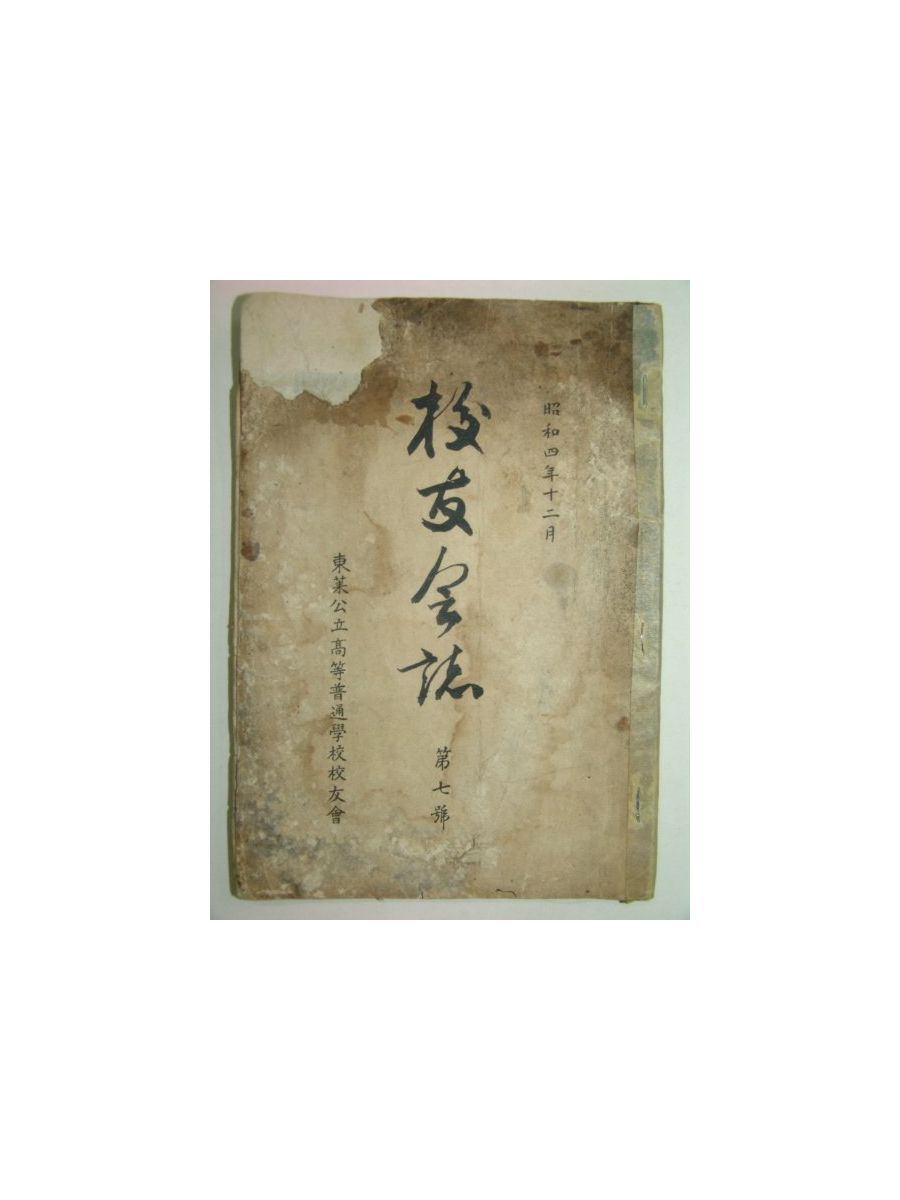 昭和四年十二月
校友会誌
第七號
東萊公立高等普通學校校友會